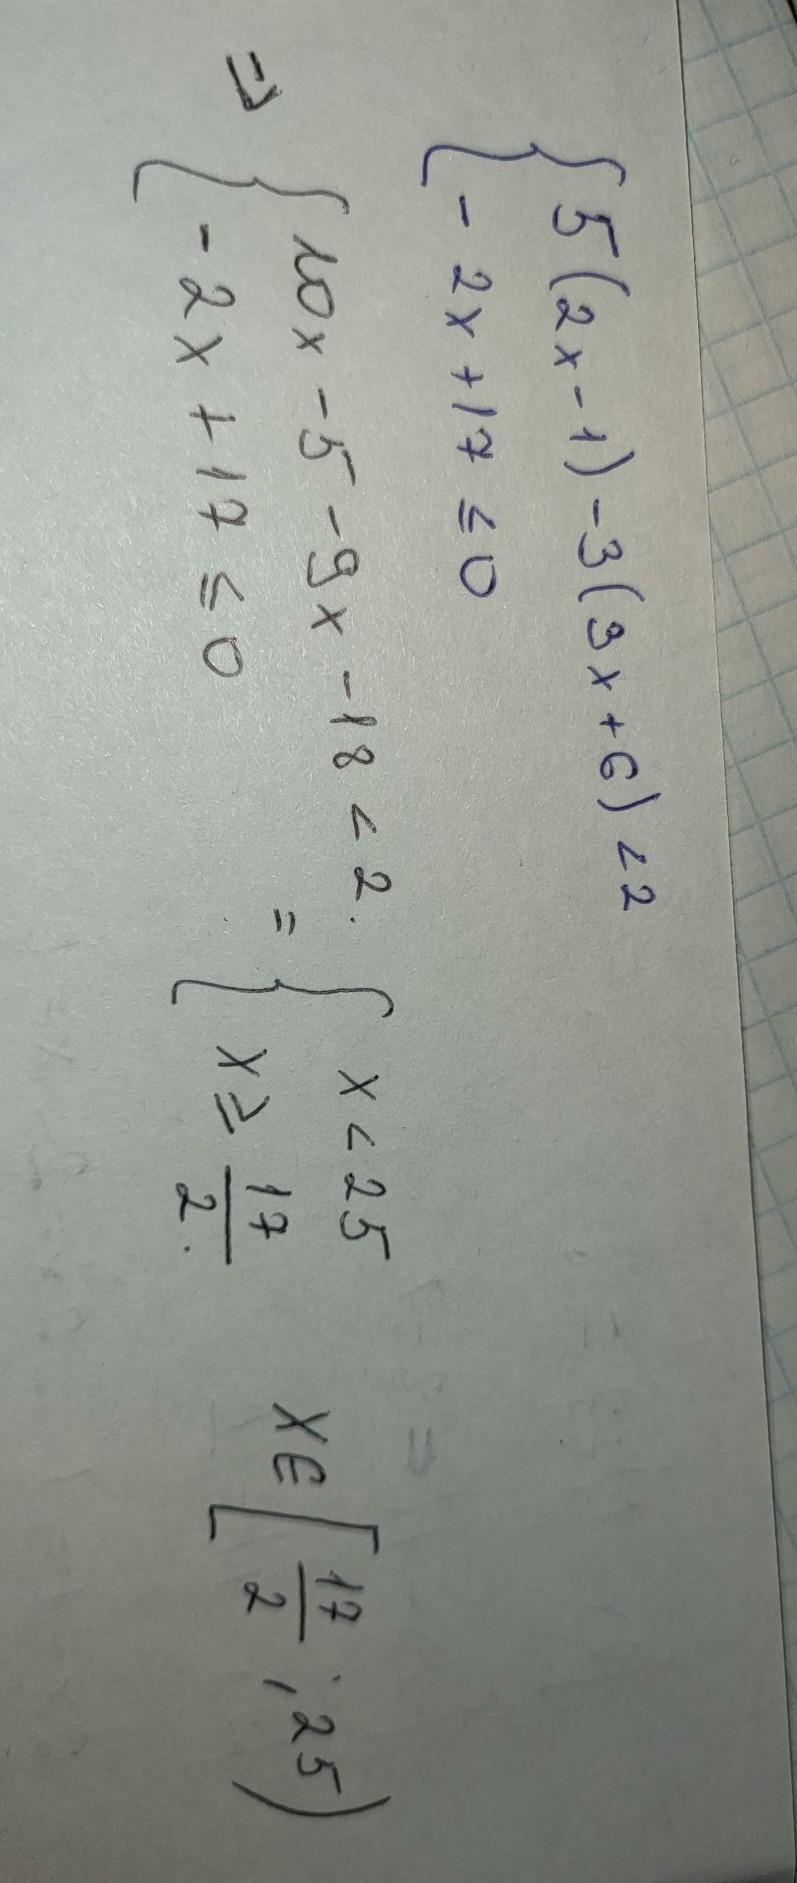 { 5(2x-1)-3(3x+6)<2
- 2x+17≤0
⇒ { 10x-5-9x-18<2.
- 2x+17≤0
= { x<25
x≥ 17/2.
x∈ [17/2 ; 25)